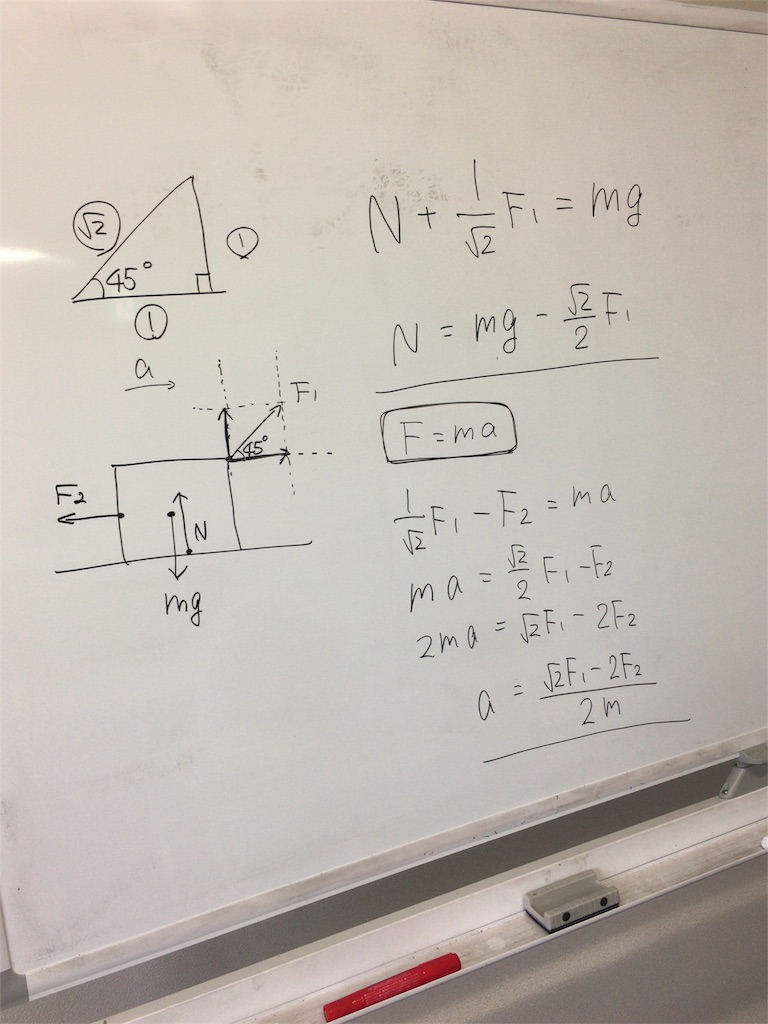 √2
45°
1
1
a
F₁
45°
F₂
N
mg
N + 1/√2 F₁ = mg
N = mg - √2/2 F₁
F = ma
1/√2 F₁ - F₂ = ma
ma = √2/2 F₁ - F₂
2ma = √2F₁ - 2F₂
a = √2F₁ - 2F₂ / 2m